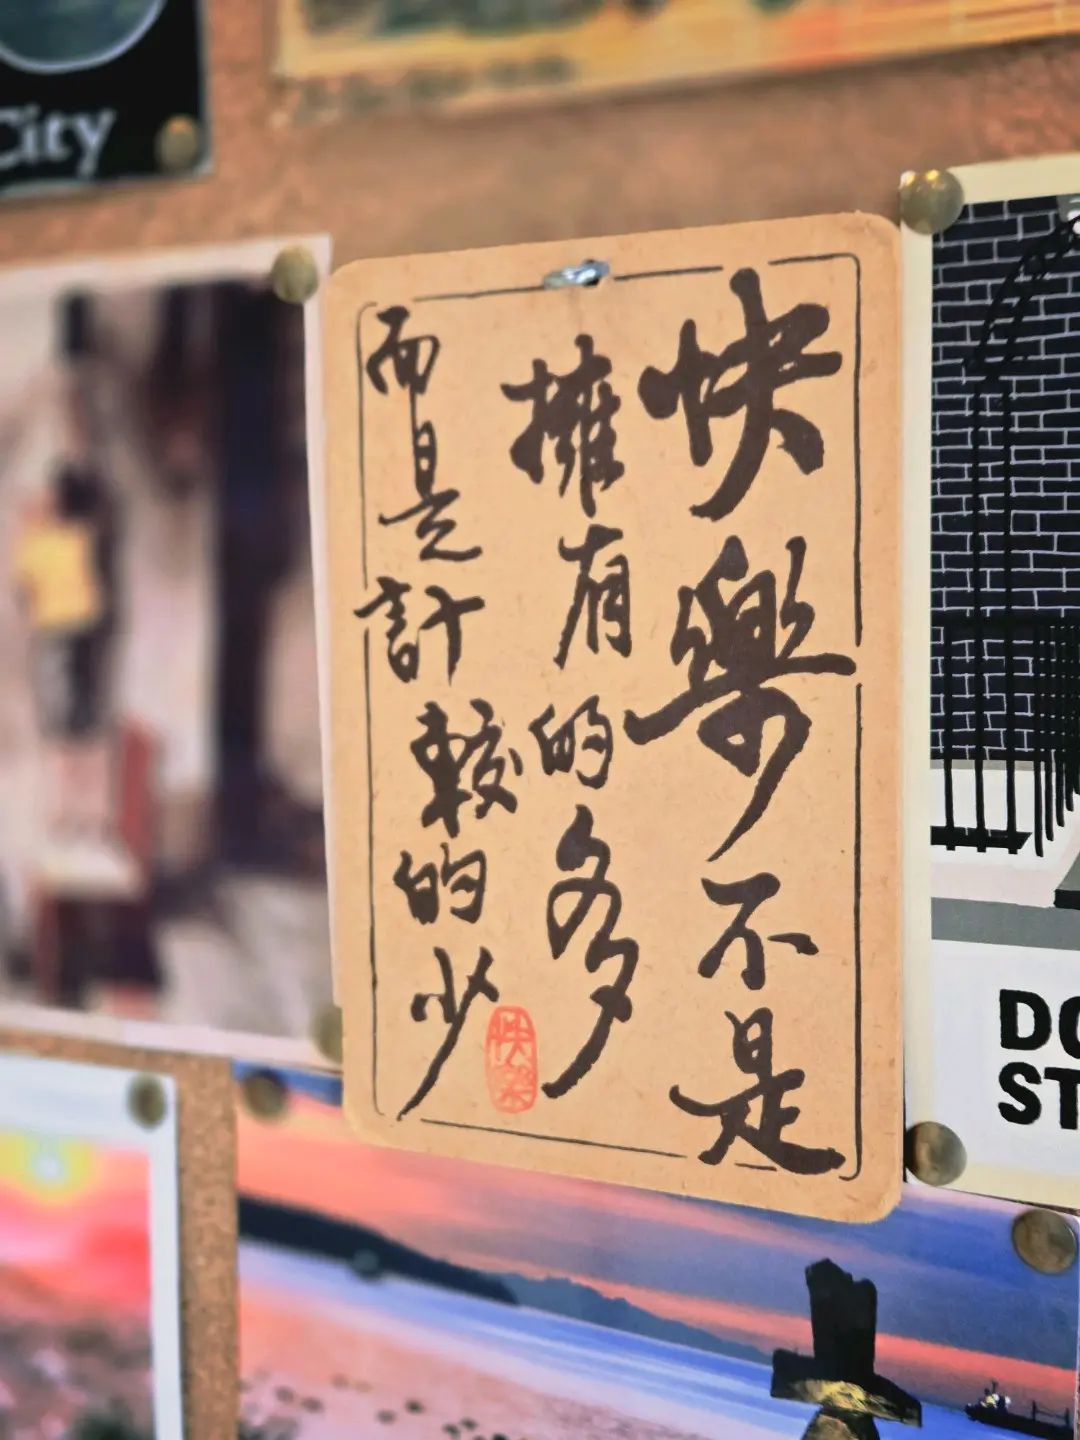 City
快樂不是
擁有的多
而是計較的少
快樂